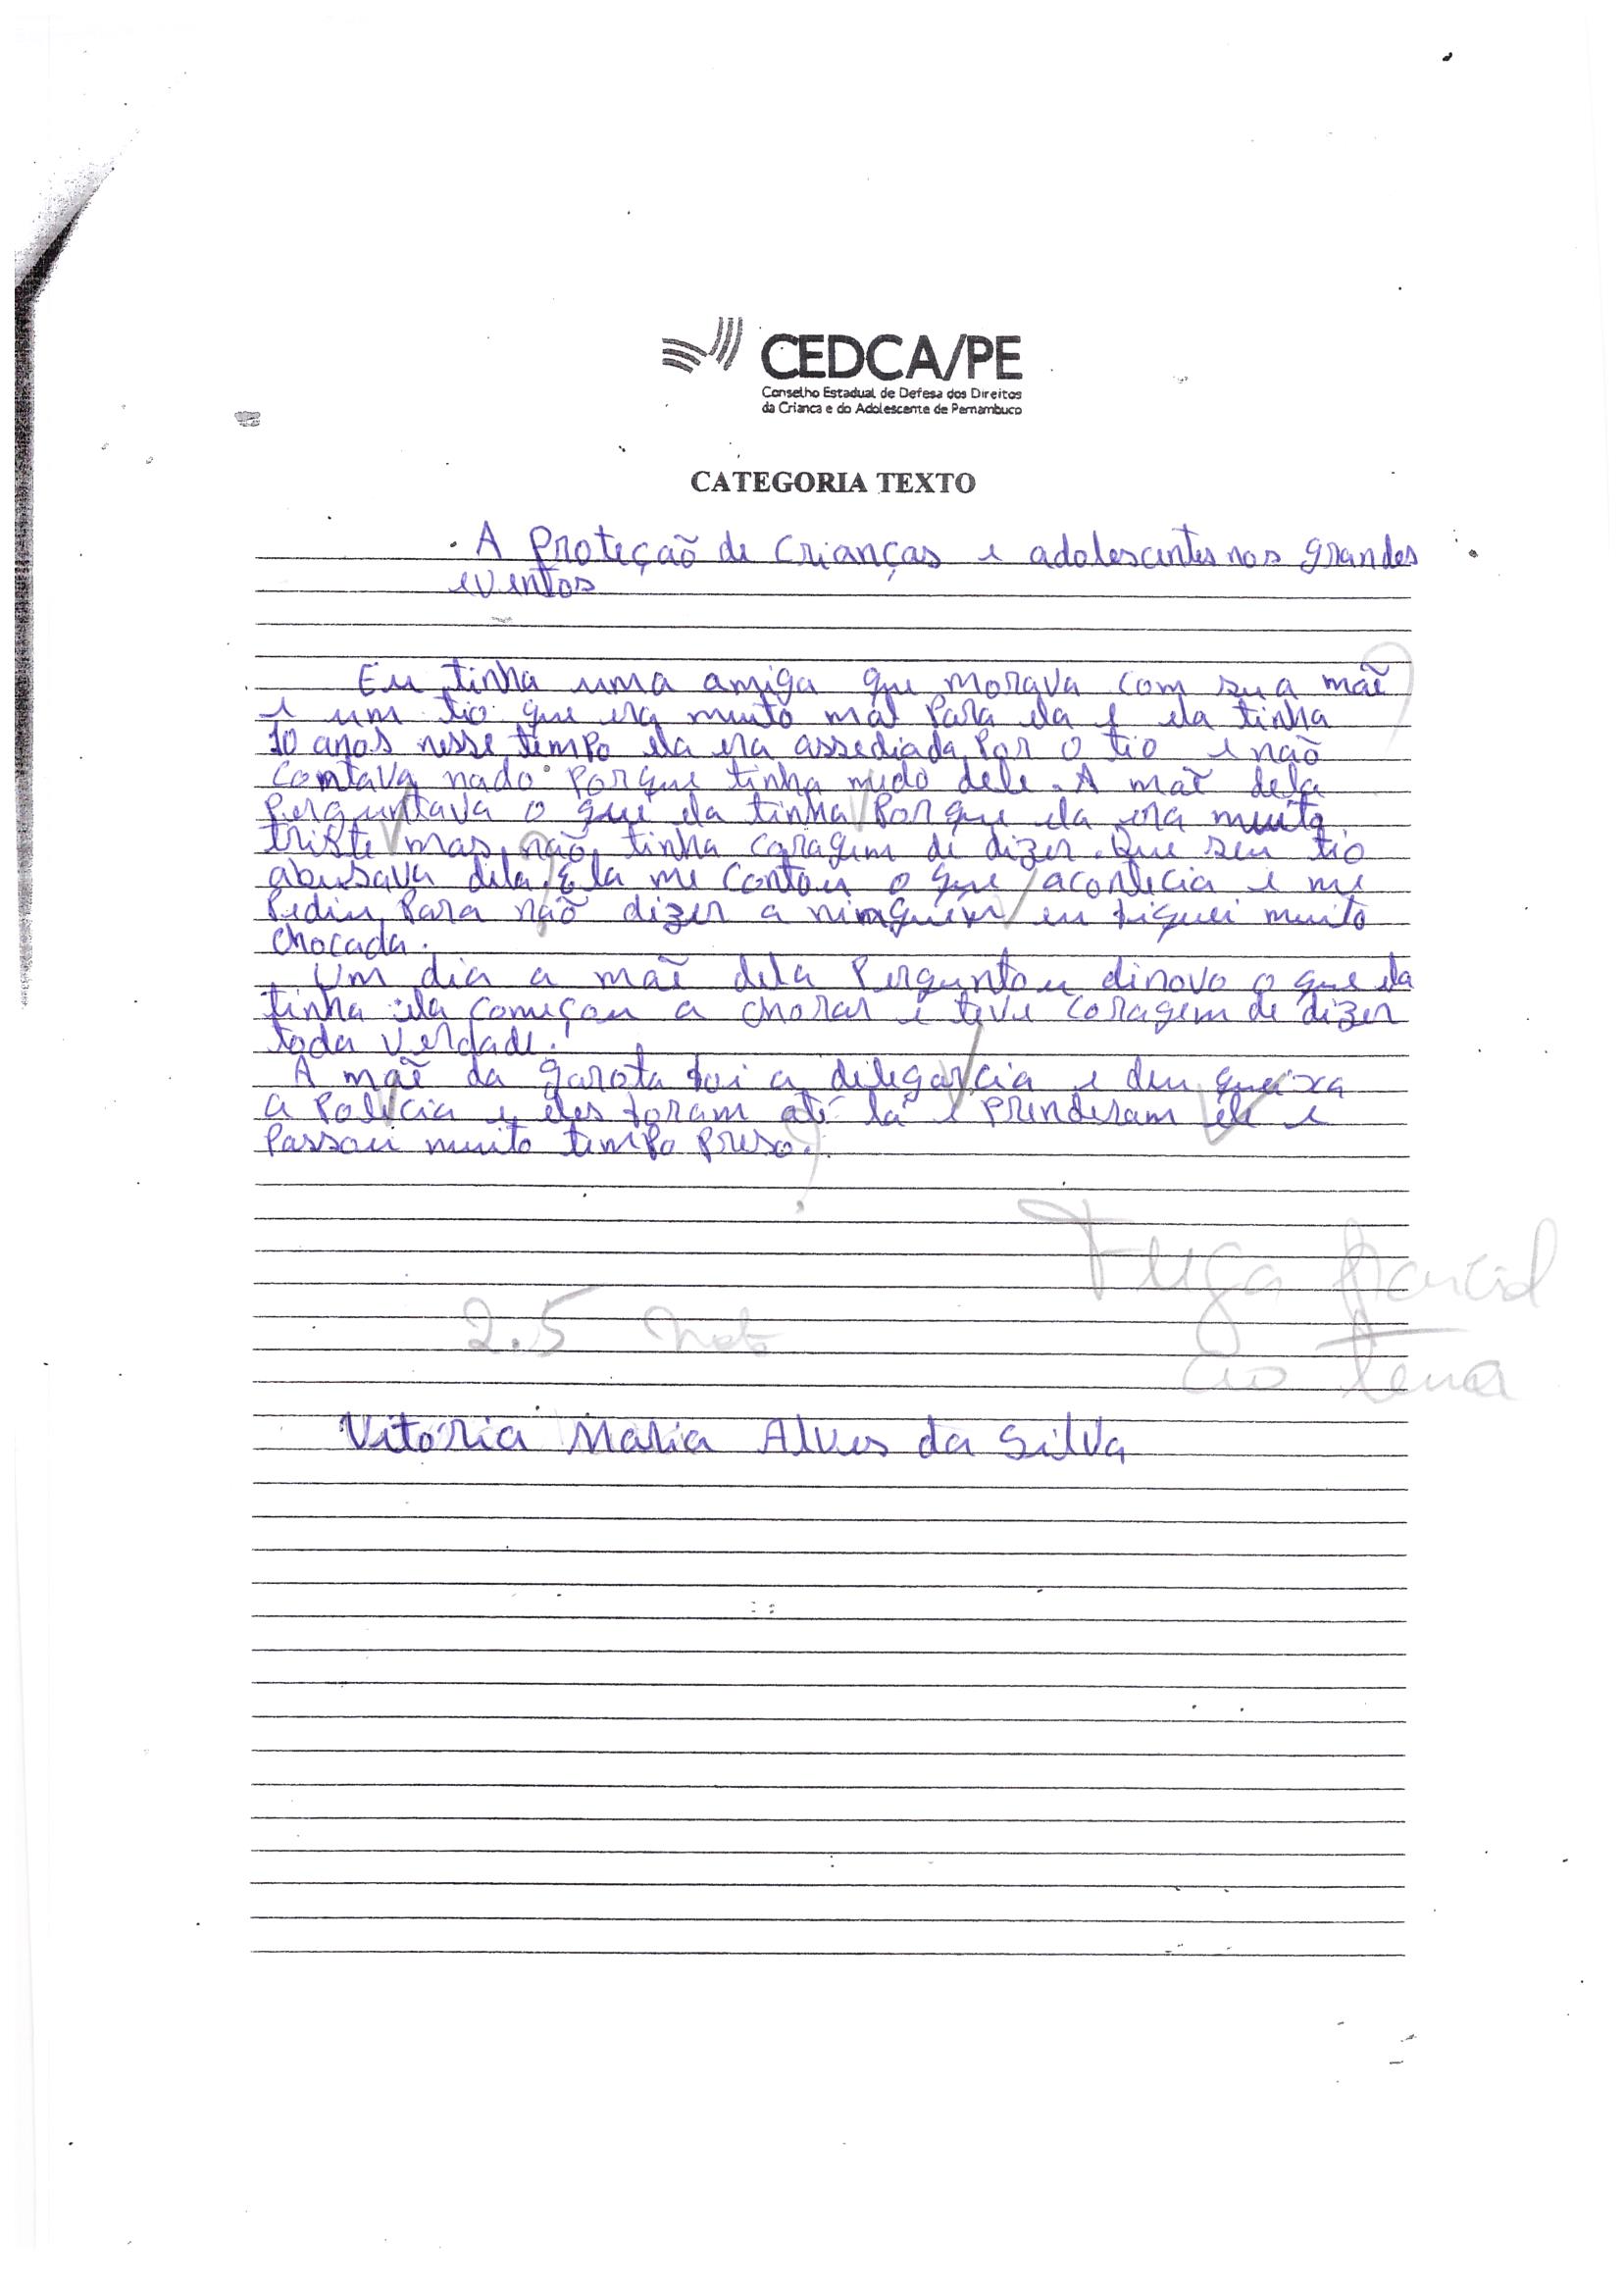 CEDCA/PE
Conselho Estadual de Defesa dos Direitos
da Criança e do Adolescente de Pernambuco
CATEGORIA TEXTO
A Proteção de Crianças e adolescentes nos grandes
eventos
Eu tinha uma amiga que morava com sua mãe
e um tio que era muito mal Para ela e ela tinha
10 anos nesse tempo ela era assediada Por o tio e não
contava nada porque tinha medo dele. A mãe dela
Perguntava o que ela tinha Porque ela era muito
triste mas não tinha coragem de dizer. Que seu tio
abusava dela. Ela me contou o que acontecia e me
Pediu Para não dizer a ninguém eu fiquei muito
chocada.
Um dia a mãe dela Perguntou dinovo o que ela
tinha ela começou a chorar e teve coragem de dizer
toda verdade.
A mãe da garota foi a delegarcia e deu queixa
a Policia e eles foram até lá e prenderam ele e
Passou muito tempo preso.
?
Fuga parcial
2.5 Nota
ao tema
Vitória Maria Alves da Silva